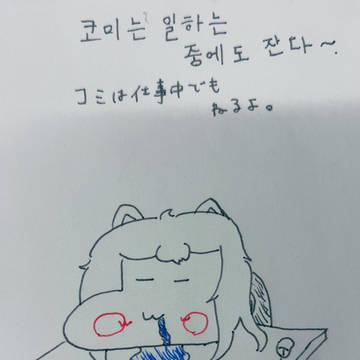 코미는 일하는
중에도 잔다~.
コミは仕事中でも
ねるよ。